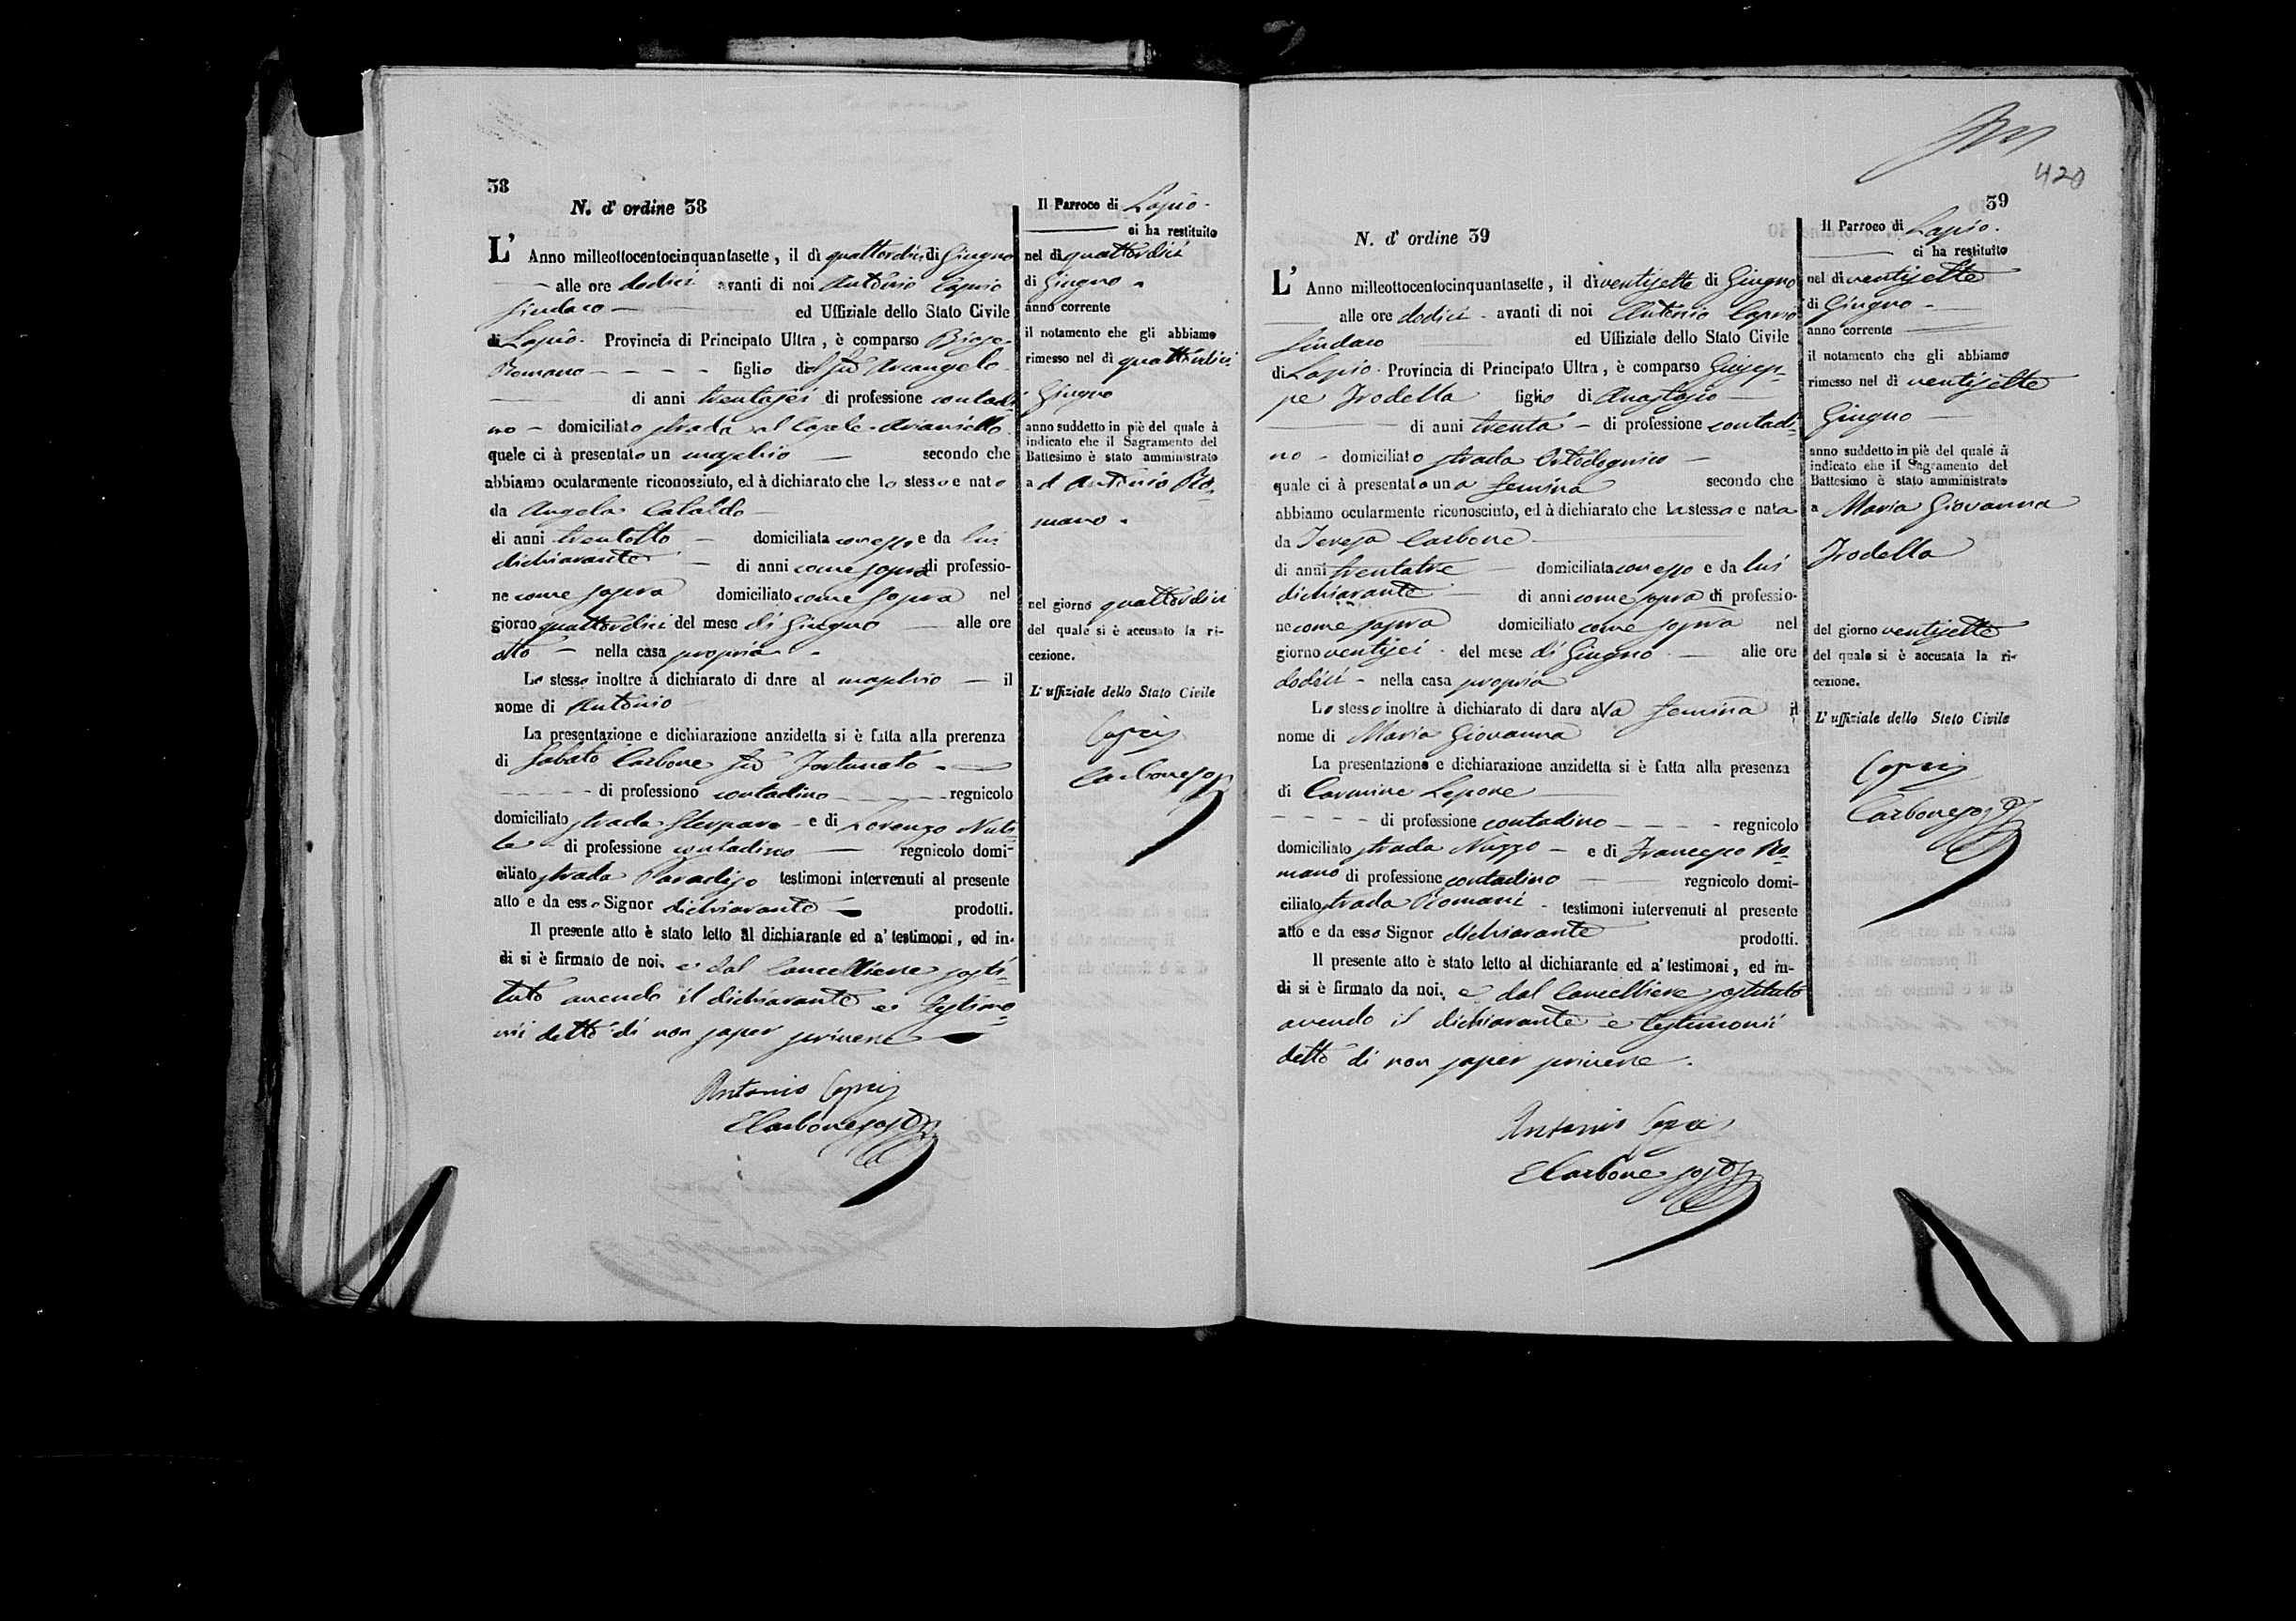 38
N. d' ordine 38
L' Anno milleottocentocinquantasette, il dì quattordici di Giugno
alle ore dodici avanti di noi Antonio Caprio
Sindaco ed Uffiziale dello Stato Civile
di Lapio. Provincia di Principato Ultra, è comparso Biage
Romano figlio del fu Arcangelo
di anni trentasei di professione contadi-
no - domiciliato strada il Casale
quele ci à presentato un maschio secondo che
abbiamo ocularmente riconosciuto, ed à dichiarato che lo stesso e nato
da Angela Cataldo
di anni trentotto domiciliata con esso e da lui
dichiarante di anni come sopra di professio-
ne come sopra domiciliato come sopra nel
giorno quattordici del mese di Giugno alle ore
otto - nella casa propria
Lo stesso inoltre à dichiarato di dare al maschio il
nome di Antonio
La presentazione e dichiarazione anzidetta si è fatta alla prerenza
di Sabato Carbone fu Fortunato
di professiono contadino regnicolo
domiciliato strada Sterparo - e di Lorenzo Nuti-
le di professione contadino regnicolo domi-
ciliato strada Paradiso testimoni intervenuti al presente
atto e da esso Signor dichiarante prodotti.
Il presente atto è stato letto al dichiarante ed a' testimoni, ed in-
di si è firmato de noi, e dal Cancelliere sosti-
tuto avendo il dichiarante e testimo-
nii detto di non saper scrivere
Antonio Caprio
E Carbone sosto
Il Parroco di Lapio.
ci ha restituito
nel dì quattordici
di Giugno
anno corrente
il notamento che gli abbiamo
rimesso nel dì quattordici
Giugno
anno suddetto in piè del quale à
indicato che il Sagramento del
Battesimo è stato amministrato
a d Antonio Ro-
mano.
nel giorno quattordici
del quale si è accusato la ri-
cezione.
L' uffiziale dello Stato Civile
Caprio
Carbone sosto
420
39
N. d' ordine 39
L' Anno milleottocentocinquantasette, il dì ventisette di Giugno
alle ore dodici - avanti di noi Antonio Caprio
Sindaco ed Uffiziale dello Stato Civile
di Lapio. Provincia di Principato Ultra, è comparso Giusep-
pe Trodella figlio di Anastasio
di anni trenta - di professione contadi-
no - domiciliato strada
quale ci à presentato una femina secondo che
abbiamo ocularmente riconosciuto, ed à dichiarato che la stessa e nata
da Teresa Carbone
di anni trentatre domiciliata con esso e da lui
dichiarante di anni come sopra di professio-
ne come sopra domiciliato come sopra nel
giorno ventisei - del mese di Giugno alle ore
dodici - nella casa propria
Lo stesso inoltre à dichiarato di dare alla femina il
nome di Maria Giovanna
La presentazione e dichiarazione anzidetta si è fatta alla presenza
di Carmine Lepore
di professione contadino regnicolo
domiciliato strada Nuzzo - e di Francesco Ro-
mano di professione contadino regnicolo domi-
ciliato strada Romani - testimoni intervenuti al presente
atto e da esso Signor dichiarante prodotti.
Il presente atto è stato letto al dichiarante ed a' testimoni, ed in-
di si è firmato da noi, e dal Cancelliere sostituto
avendo il dichiarante e testimonii
detto di non saper scrivere.
Antonio Caprio
E Carbone sosto
Il Parroco di Lapio.
ci ha restituito
nel dì ventisette
di Giugno
anno corrente
il notamento che gli abbiamo
rimesso nel dì ventisette
Giugno
anno suddetto in piè del quale à
indicato che il Sagramento del
Battesimo è stato amministrato
a Maria Giovanna
Trodella
del giorno ventisette
del quale si è accusata la ri-
cezione.
L' uffiziale dello Stato Civile
Caprio
Carbone sosto